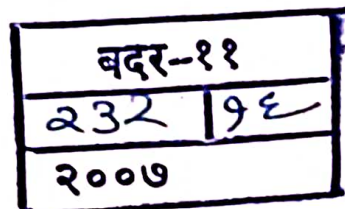 बदर-११
२३२ | १६
२००७